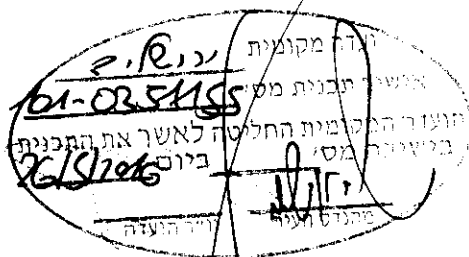 ועדה מקומית ירושלים
אישור תכנית מס' 101-0251155
הועדה המקומית החליטה לאשר את התכנית
בישיבה מס' ביום 26/5/2016
מהנדס העיר יו"ר הועדה